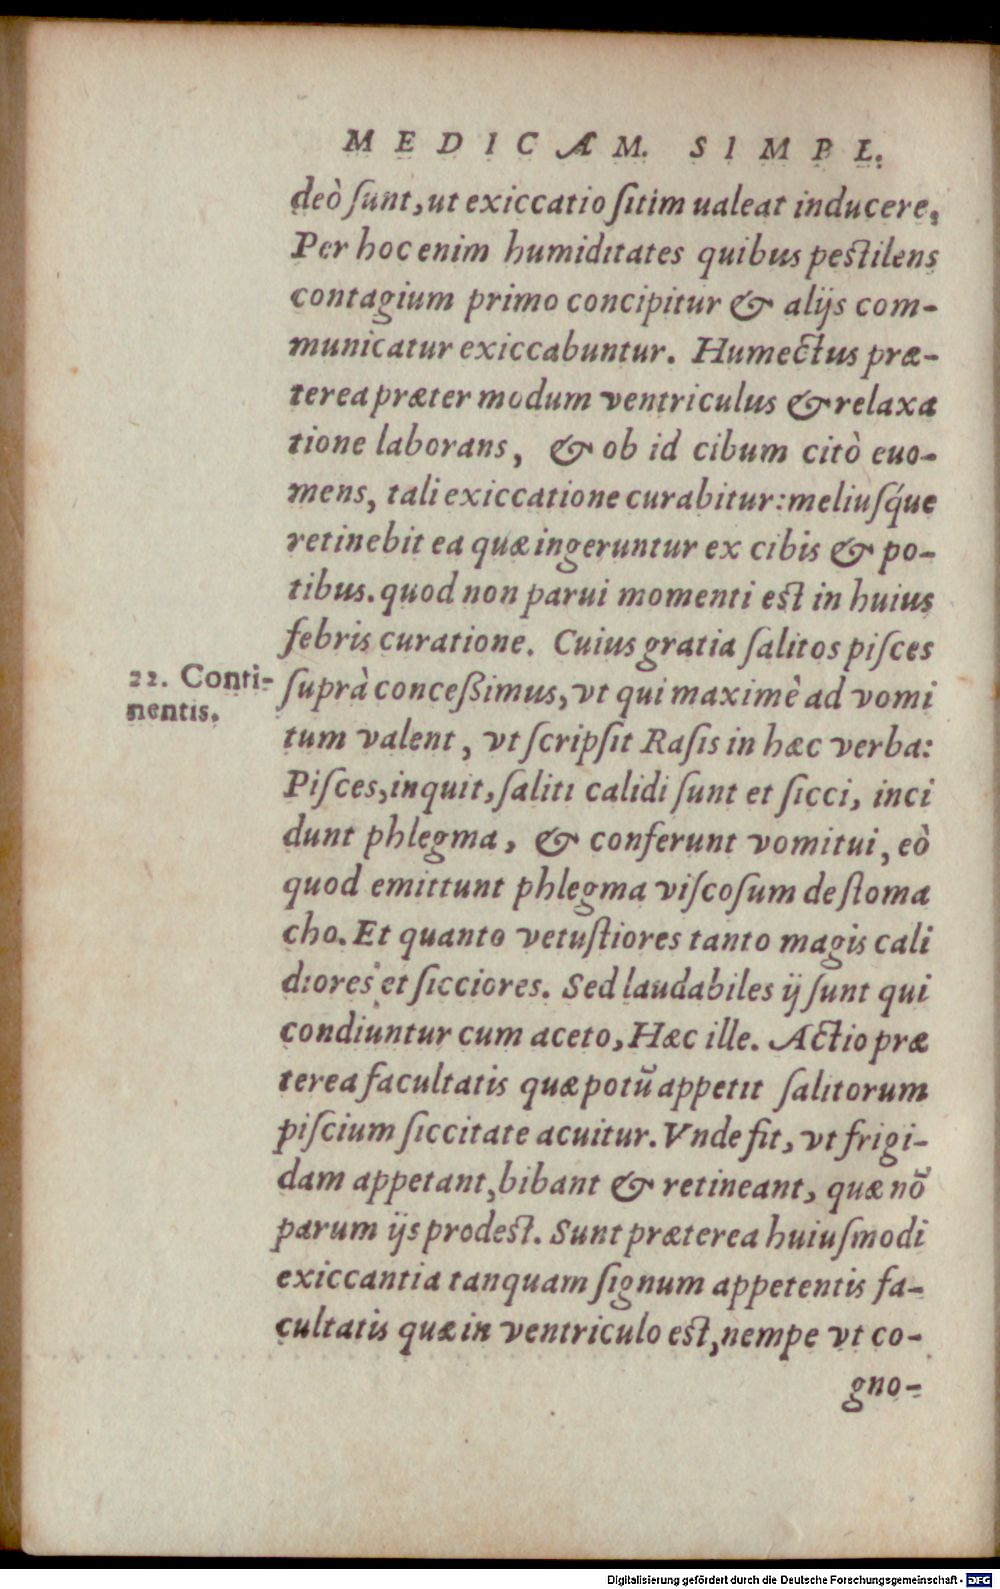 MEDICAM. SIMPL.
deò ſunt, ut exiccatio ſitim ualeat inducere.
Per hoc enim humiditates quibus peſtilens
contagium primo concipitur & alijs com-
municatur exiccabuntur. Humectus præ-
terea præter modum ventriculus & relaxa
tione laborans, & ob id cibum citò euo-
mens, tali exiccatione curabitur: meliuſq́ue
retinebit ea quæ ingeruntur ex cibis & po-
tibus. quod non parui momenti eſt in huius
febris curatione. Cuius gratia ſalitos piſces
22. Conti-
nentis.
ſuprà conceßimus, vt qui maximè ad vomi
tum valent, vt ſcripſit Raſis in hæc verba:
Piſces, inquit, ſaliti calidi ſunt et ſicci, inci
dunt phlegma, & conferunt vomitui, eò
quod emittunt phlegma viſcoſum de ſtoma
cho. Et quanto vetuſtiores tanto magis cali
diores et ſicciores. Sed laudabiles ij ſunt qui
condiuntur cum aceto, Hæc ille. Actio præ
terea facultatis quæ potũ appetit ſalitorum
piſcium ſiccitate acuitur. Vnde fit, vt frigi-
dam appetant, bibant & retineant, quæ nõ
parum ijs prodeſt. Sunt præterea huiuſmodi
exiccantia tanquam ſignum appetentis fa-
cultatis quæ in ventriculo eſt, nempe vt co-
gno-
Digitalisierung gefördert durch die Deutsche Forschungsgemeinschaft - DFG